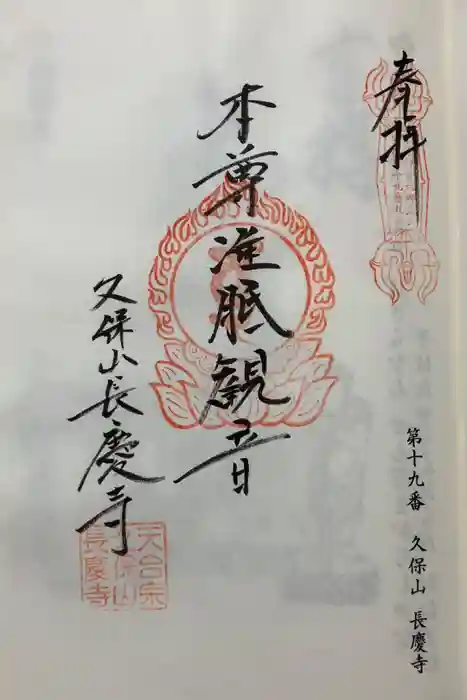 奉拝
第十九番 久保山 長慶寺
本尊准胝観音
久保山長慶寺
天台宗
久保山
長慶寺